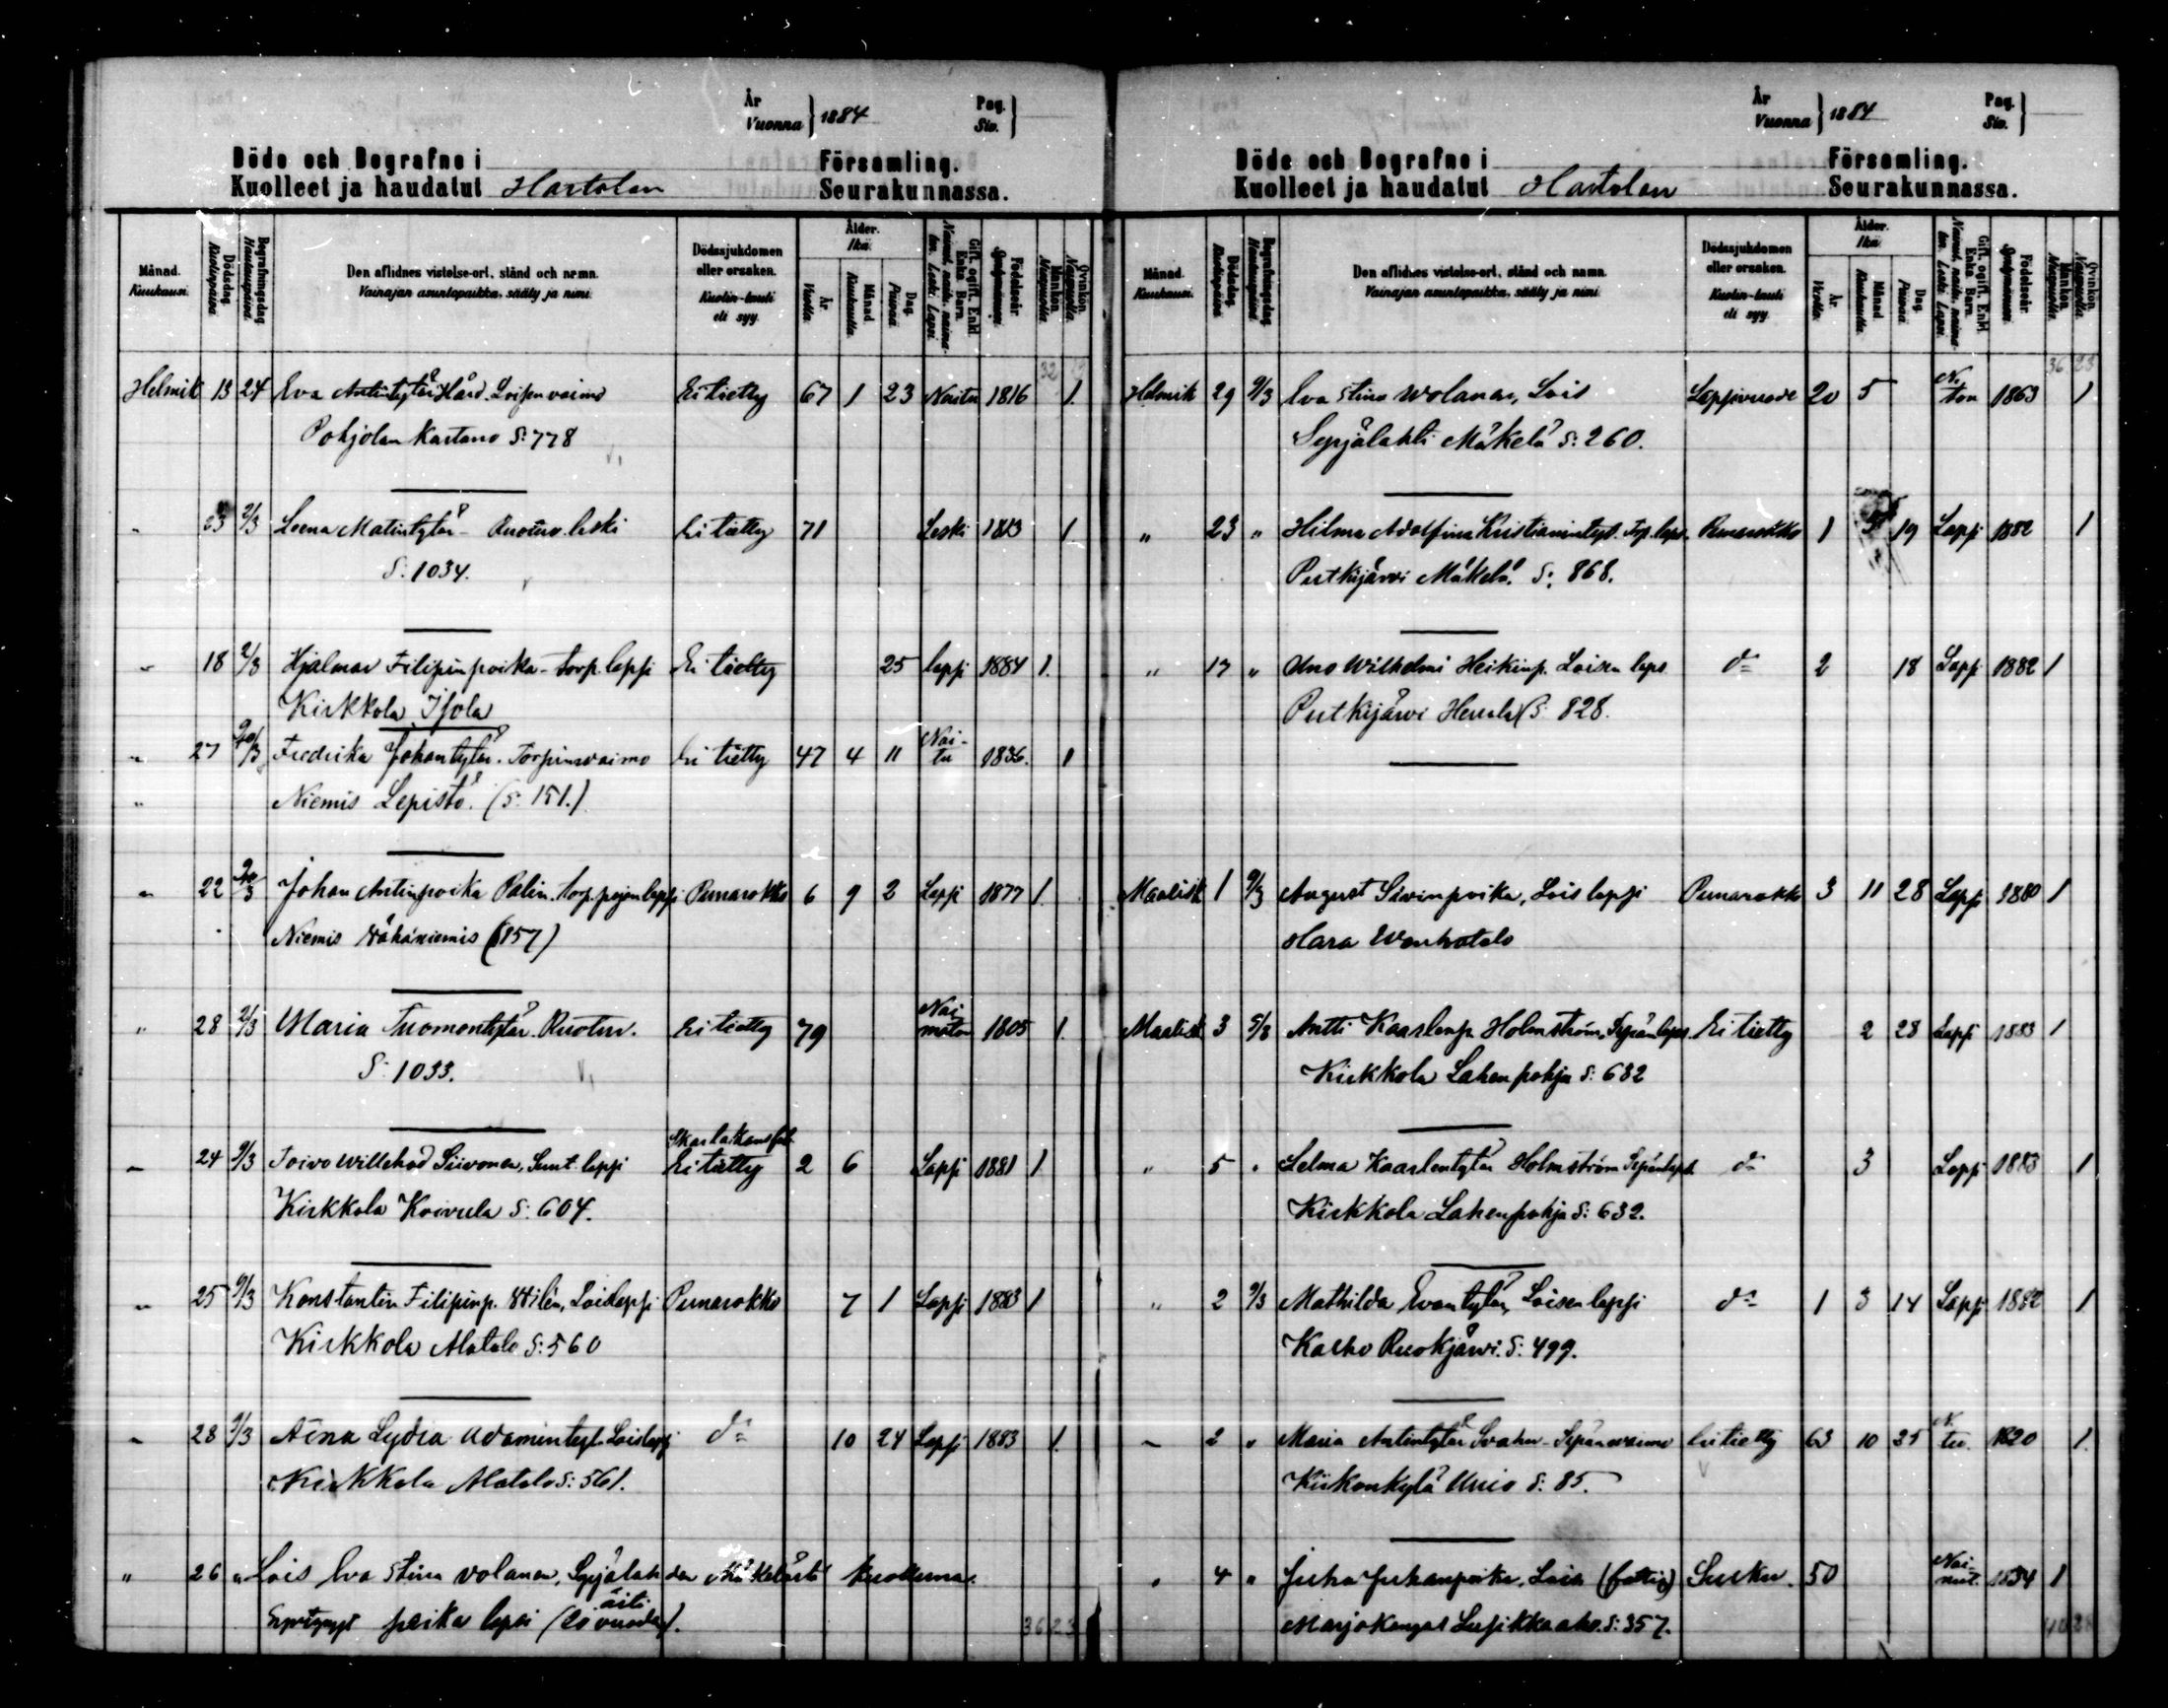 År
Vuonna } 1884
Pag.
Siv. }
Döde och Begrafne i Församling.
Kuolleet ja haudatut Hartolan Seurakunnassa.
Månad. Kuukausi.
Dödsdag. Kuolinpäivä
Begrafningsdag. Hautauspäivä.
Den aflidnes vistelse-ort, stånd och namn.
Vainajan asuntopaikka, sääty ja nimi.
Dödssjukdomen eller orsaken.
Kuolin-tauti eli syy.
Ålder. Ikä.
År Vuotta
Månad Kuukautta.
Dag. Päivää
Gift, ogift, Enkl. Enka Barn.
Födelseår.
Mankön. Miespuolia.
Qvinkön. Naispuolia.
32
Helmik 13 24 Eva Antintytär Hård. Loisen vaimo Ei tietty 67 1 23 Naitu 1816 1
Pohjolan Kartano S: 778
23 2/3 Leena Matintytär - Ruotuv. leski Ei tietty 71 Leski 1813 1
S: 1034.
18 2/3 Hjalmar Filipinpoika - torp. lapsi Ei tietty 25 lapsi 1884 1.
Kirkkola Isola
27 Fredrika Johantytär. Torpinvaimo Ei tietty 47 4 11 Naitu 1836. 1
Niemis Lepistö. (S: 151.)
22 Johan Antinpoika Palin. torp. pojan lapsi Punarokko 6 9 2 Lapsi 1877 1
Niemis Wähäniemis (157)
" 28 2/3 Maria Tuomontytär Ruotuv. Ei tietty 79 Naimaton 1805 1.
S: 1033.
24 9/3 Toivo Willehad Siivonen, Sunt. lapsi Ei tietty 2 6 Lapsi 1881 1
Kirkkola Koivula S: 604.
25 9/3 Konstantin Filipinp. Wilén, Loislapsi Punarokko 7 1 Lapsi 1883 1
Kirkkola Alatalo S: 560
28 9/3 Aina Lydia Adamintyt. Loislapsi d:o 10 24 Lapsi 1883 1.
Kirkkola Alatalo S: 561.
" 26 " Lois Eva Stina Volanen, Sepjälahden Mäkelästä kuolluna
äiti
poika lapsi (20 vuoden).
36 23
År
Vuonna } 1884
Pag.
Siv. }
Döde och Begrafne i Församling.
Kuolleet ja haudatut Hartolan Seurakunnassa.
Månad. Kuukausi.
Dödsdag. Kuolinpäivä.
Begrafningsdag. Hautauspäivä
Den aflidnes vistelse-ort, stånd och namn.
Vainajan asuntopaikka, sääty ja nimi.
Dödssjukdomen eller orsaken.
Kuolin-tauti eli syy.
Ålder. Ikä.
År Vuotta.
Månad Kuukautta.
Dag. Päivää.
Gift, ogift, Enkl. Enka Barn.
Födelseår.
Mankön. Miespuolia.
Qvinkön. Naispuolia.
36 23
Helmik 29 9/3 Eva Stina Wolanen, Lois Lapsivuode 20 5 N.ton 1863 1
Sepjälahti Mäkelä S: 260.
" 23 " Hilma Adolfina Kristianintyt. Torp. laps. Punarokko 1 19 Lapsi 1882 1
Putkijärvi Mäkelä. S: 868.
" 17 " Uno Wilhelmi Heikinp. Loisen laps d:o 2 18 Lapsi 1882 1
Putkijärvi Herrala S: 828.
Maalisk 1 9/3 August Siwinpoika, Lois lapsi Punarokk 3 11 28 Lapsi 1880 1
Hara Wanhatalo
Maalisk 3 5/3 Antti Kaarlenp. Holmström, Sepän laps. Ei tietty 2 28 Lapsi 1883 1
Kirkkola Lahenpohja S: 632
" 5 " Selma Kaarlentytär Holmström Sepänlaps d:o 3 Lapsi 1883 1
Kirkkola Lahenpohja S: 632.
" 2 9/3 Mathilda Evantytär, Loisen lapsi d:o 1 3 14 Lapsi 1882 1
Kalho Ruokjärvi. S: 499.
2 " Maria Antintytär Svahn - Sepänvaimo Ei tietty 63 10 25 N.tu. 1820 1.
Kirkonkylä Unio S: 85.
4 " Juho Juhanpoika, Lois (fattig) 50 1834 1
Marjokangas S: 357.
40 28